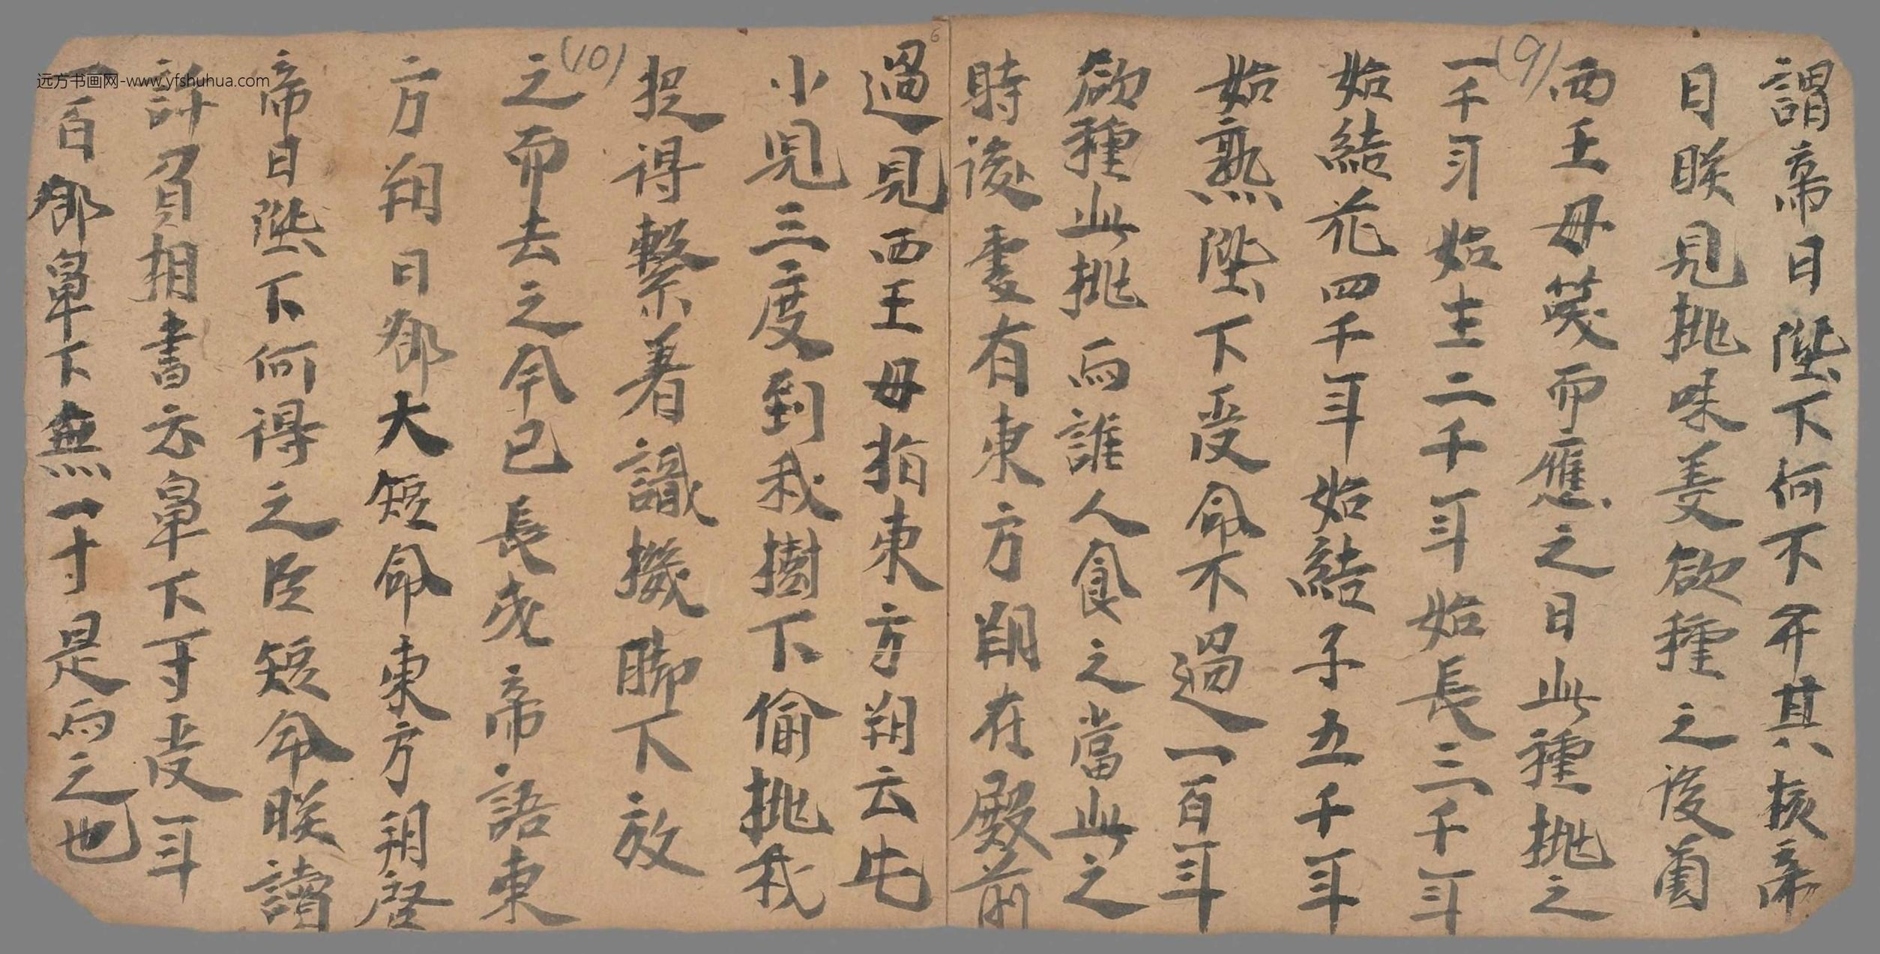 謂帝曰陛下何不弃其核帝
曰朕見桃味美欲種之後薗
西王母笑而應之曰此種桃之
一千年始生二千年始長三千年
始結花四千年始結子五千年
始熟陛下受命不過一百年
欲種此桃而誰人食之當此之
時後更有東方朔在殿前
過見西王母指東方朔云此
小兒三度到我樹下偷桃我
捉得繫著識機脚下放
之而去之今已長成帝語東
方朔曰卿大短命東方朔啓
帝曰陛下何得之臣短命朕讀
許負相書云鼻下一寸受年
一百卿鼻下無一寸是而之也
(9)
(10)
6
远方书画网-www.yfshuhua.com